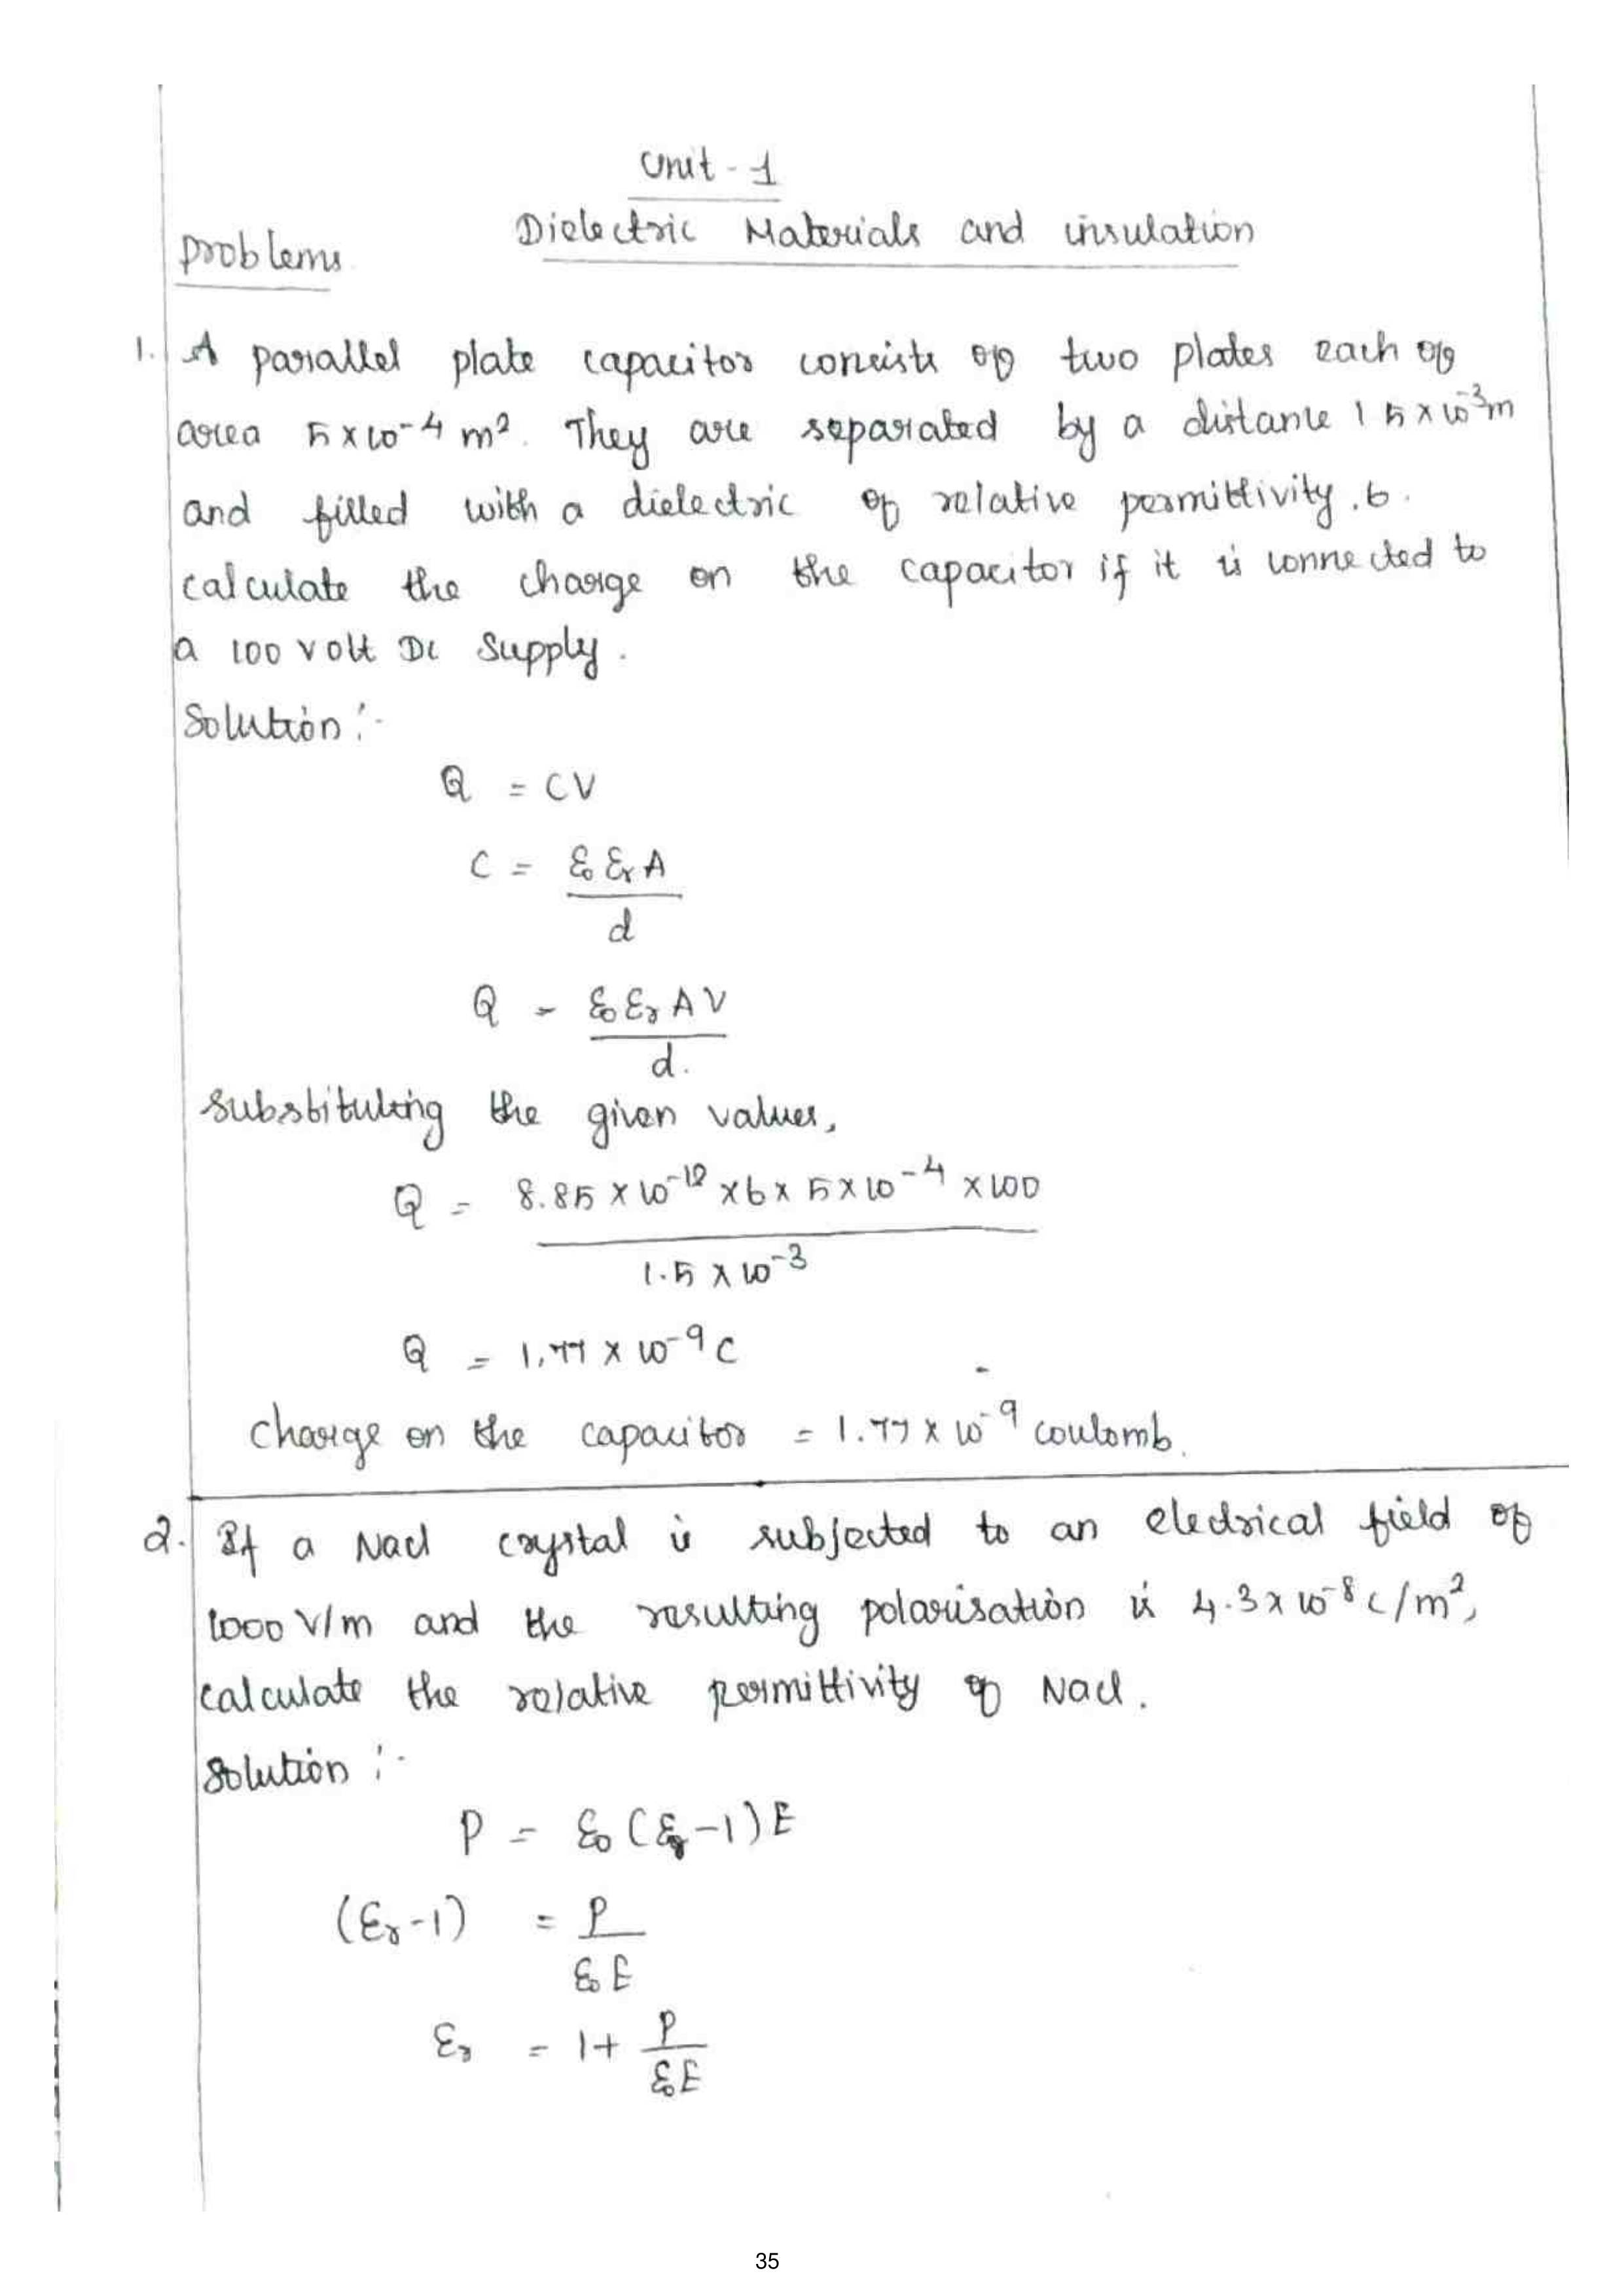 Unit - 1
Dielectric Materials and insulation
Problems
1. A parallel plate capacitor consists of two plates each of
area 5 x 10-4 m2. They are separated by a distance 1 5 x 10-3m
and filled with a dielectric of relative permittivity .6.
calculate the charge on the capacitor if it is connected to
a 100 volt DC supply.
Solution :-
Q = CV
C = ε0 εr A
d
Q = ε0 εr A V
d.
substituting the given values,
Q = 8.85 x 10-12 x 6 x 5 x 10-4 x 100
1.5 x 10-3
Q = 1.77 x 10-9 C
charge on the capacitor = 1.77 x 10-9 coulomb.
2. If a Nacl crystal is subjected to an electrical field of
1000 V/m and the resulting polarisation is 4.3 x 10-8 c/m2,
calculate the relative permittivity of Nacl.
Solution :-
P = ε0 (εr - 1) E
(εr - 1) = P
ε0 E
εr = 1 + P
ε0 E
35